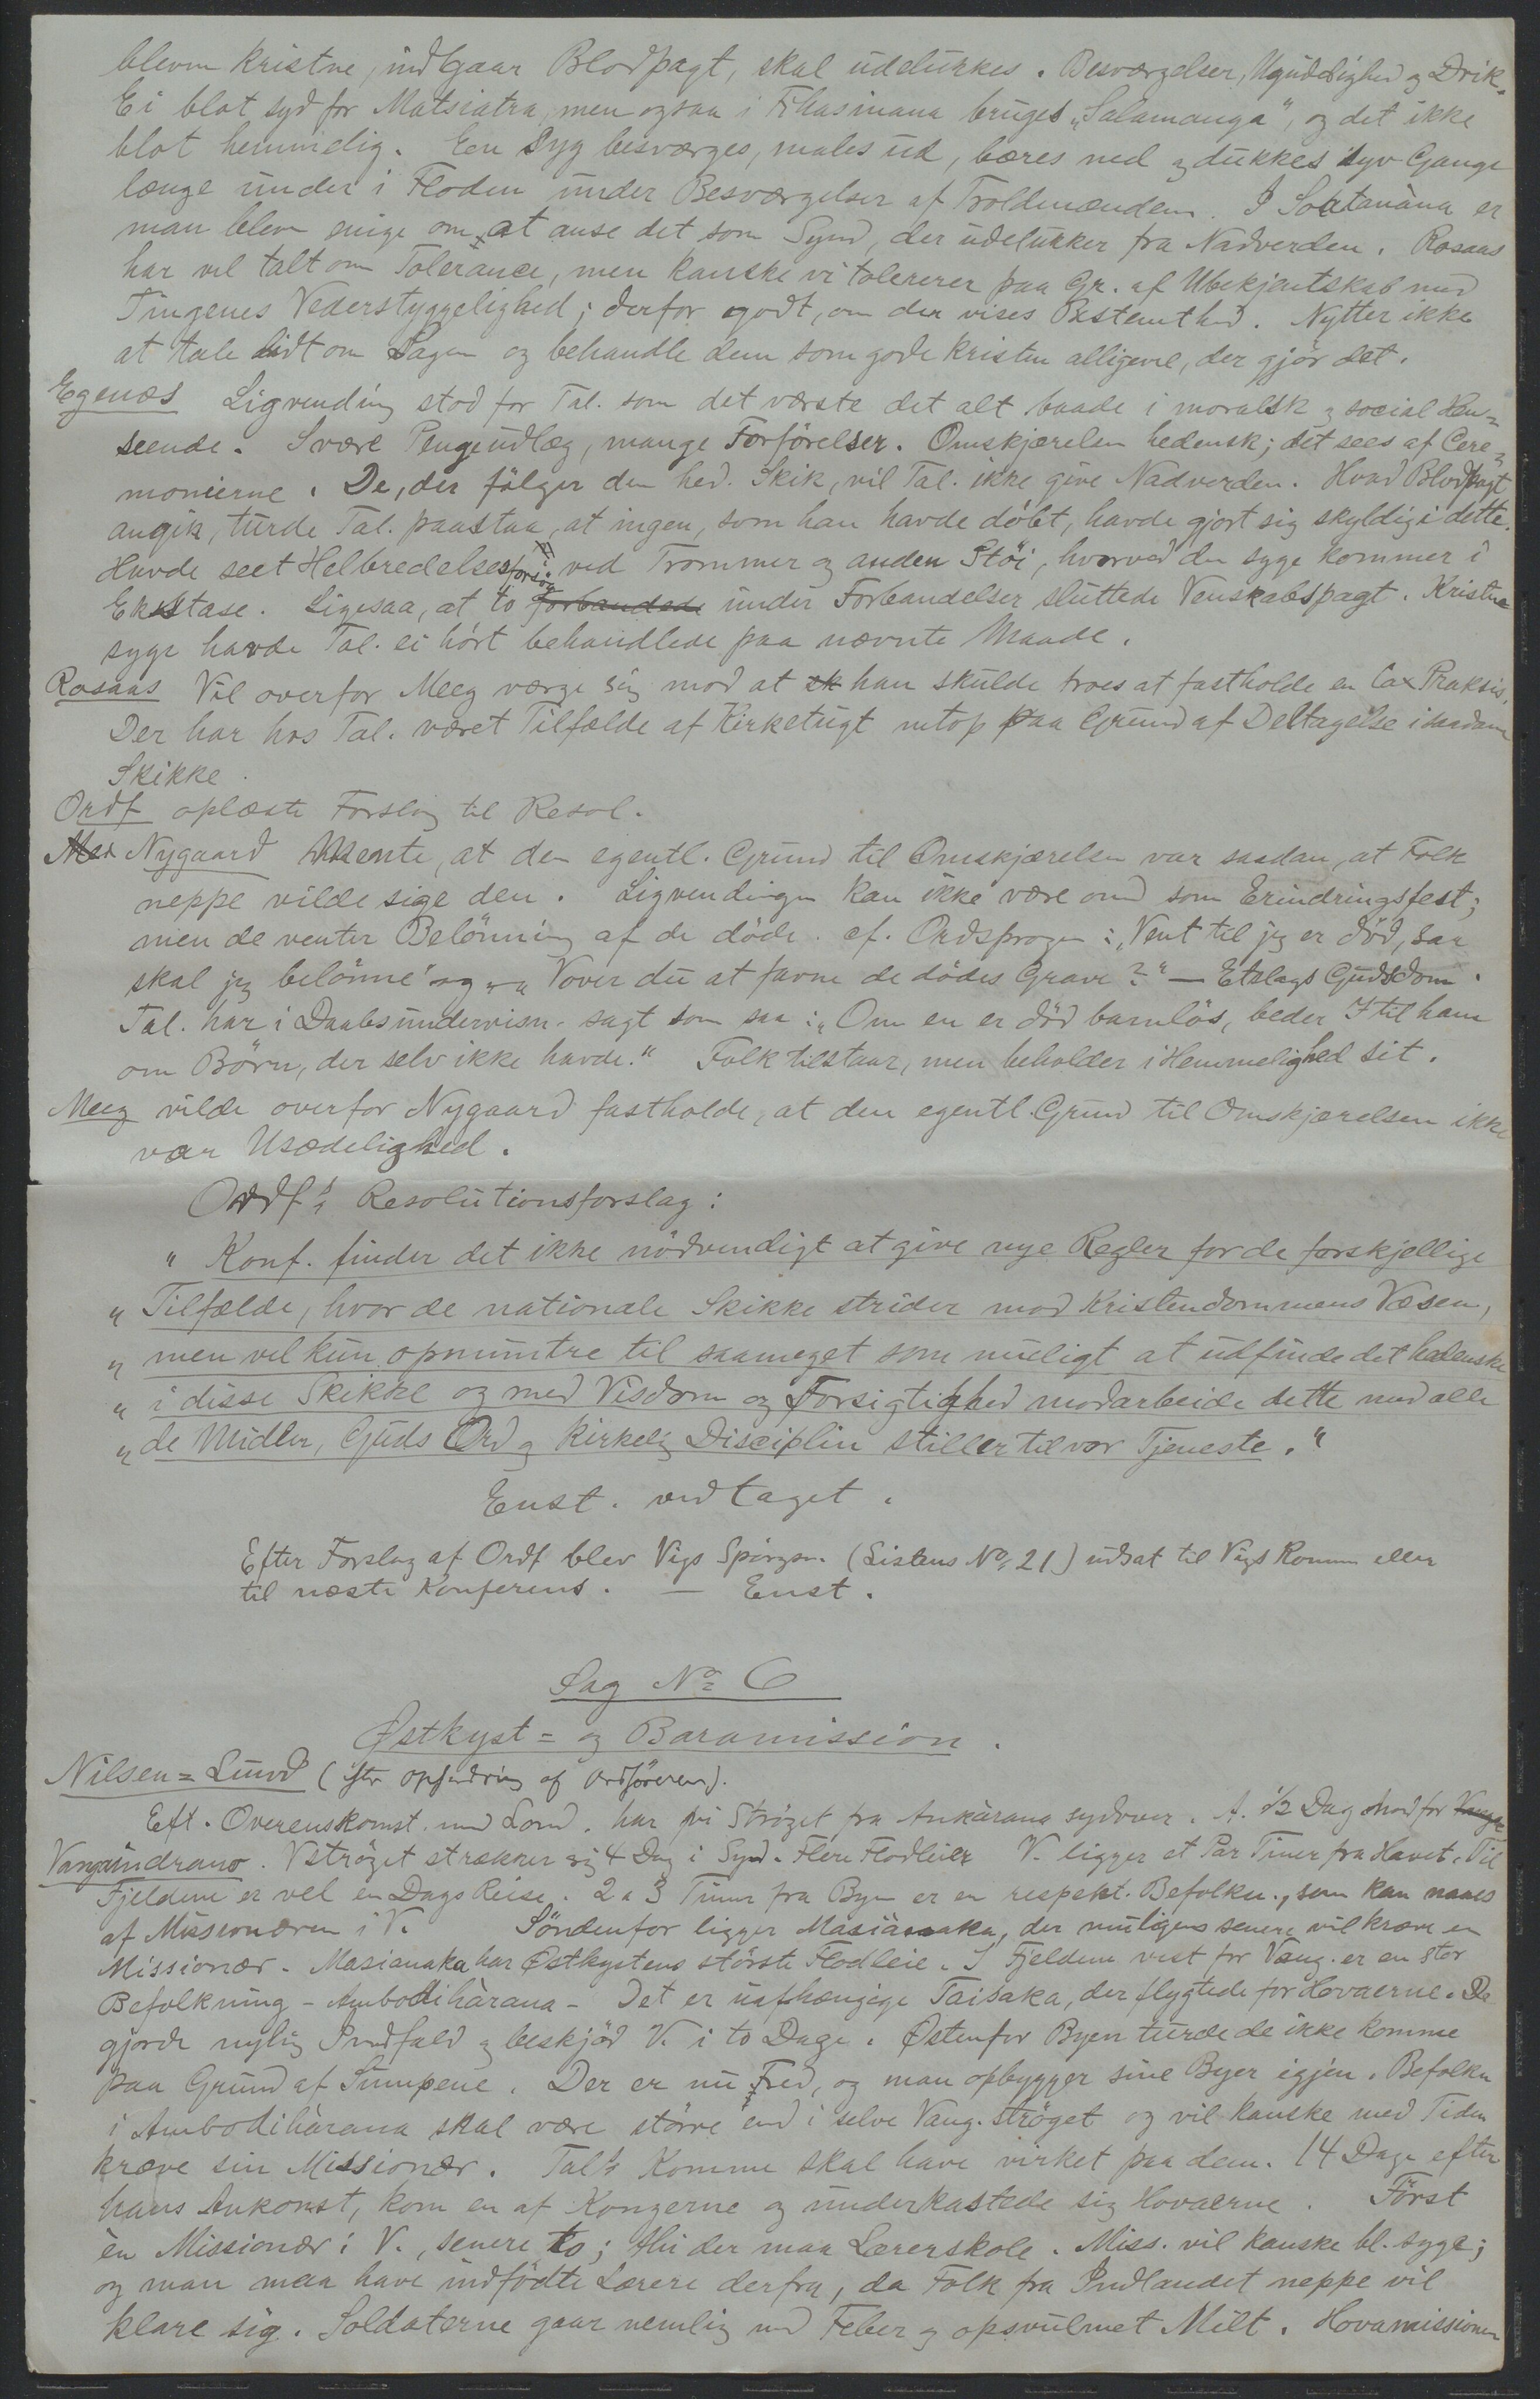 bleven kristne, indgaar Blodpagt, skal udelukkes. Besværgelser, Ugudelighed og Drik.
Ei blot syd for Matsiatra, men ogsaa i Fihasinana bruges „Salamanga", og det ikke
blot hemmelig. En Syg besværges, males ud, bæres ned og dukkes syv Gange
længe under i Floden under Besværgelser af Troldmændene. I Soatanàna er
man bleven enige om at anse det som Synd, der udelukker fra Nadverden. Rosaas
har vel talt om Tolerance, men kanske vi tolererer paa Gr. af Ubekjentskab med
Tingenes Vederstyggelighed; derfor godt, om der vises Bestemthed. Nytter ikke
at tale lidt om Sagen og behandle dem som gode kristne alligevel, der gjør det.
Egenæs Ligvending stod for Tal. som det værste det alt baade i moralsk og social Hen=
seende. Svære Pengeudlæg, mange Forførelser. Omskjærelsen hedensk; det sees af Cere=
monierne. De, der følger den hed. Skik, vil Tal. ikke give Nadverden. Hvad Blodpagt
angik, turde Tal. paastaa, at ingen, som han havde døbt, havde gjort sig skyldig i dette.
Havde seet Helbredelsesforsøg ved Trommer og anden Støi, hvorved den syge kommer i
Ekstase. Ligesaa, at to forbandede under Forbandelser sluttede Venskabspagt. Kristne
syge havde Tal. ei hørt behandlede paa nævnte Maade.
Rosaas Vil overfor Meeg værge sig mod at sk han skulde troes at fastholde en lax Praksis.
Der har hos Tal. været Tilfælde af Kirketugt netop paa Grund af Deltagelse i saadanne
Skikke.
Ordf oplæste Forslag til Resol.
Nygaard Mente, at den egentl. Grund til Omskjærelsen var saadan, at Folk
neppe vilde sige den. Ligvendingen kan ikke være ond som Erindringsfest;
men de venter Belønning af de døde. cf. Ordsproget: „Vent til jeg er død, saa
skal jeg belønne" og „Vover du at favne de dødes Grave?" — Etslags Gudsdom.
Tal. har i Daabsundervisn. sagt som saa: „Om en er død barnløs, beder I til ham
om Børn, der selv ikke havde." Folk tilstaar, men beholder i Hemmelighed sit.
Meeg vilde overfor Nygaard fastholde, at den egentl. Grund til Omskjærelsen ikke
var Usædelighed.
Ordf's Resolutionsforslag:
„Konf. finder det ikke nødvendigt at give nye Regler for de forskjellige
„Tilfælde, hvor de nationale Skikke strider mod Kristendommens Væsen,
„men vil kun opmuntre til saameget som muligt at udfinde det hedenske
„i disse Skikke og med Visdom og Forsigtighed modarbeide dette med alle
„de Midler, Guds Ord og kirkelig Disciplin stiller til vor Tjeneste."
Enst. vedtaget.
Efter Forslag af Ordf blev Vigs Spørgsm. (Listens No 21) udsat til Vigs Komme eller
til næste Konferens. — Enst.
Sag No 6
Østkyst= og Baramission.
Nilsen=Lund (efter opfordring af Ordføreren).
Eft. Overenskomst med Lond. har vi Strøget fra Ankàrana sydover. A. ½ Dag nord for
Vangaindrano. V strøget strækker sig 4 Dag i Syd. Flere Flodleier V. ligger et Par Timer fra Havet. Til
Fjeldene er vel en Dags Reise. 2 a 3 Timer fra Byen er en respekt. Befolkn., som kan naaes
af Missionæren i V. Søndenfor ligger Masiànaka, der muligens senere vil kræve en
Missionær. Masianaka har Østkystens største Flodleie. I Fjeldene vest for Vang. er en stor
Befolkning - Ambodihàrana - Det er uafhængige Taisaka, der flygtede for Hovaerne. De
gjorde nylig Indfald og beskjød V. i to Dage. Østenfor Byen turde de ikke komme
paa Grund af Sumpene. Der er nu Fred, og man opbygger sine Byer igjen. Befolkn
i Ambodihàrana skal være større end i selve Vang. strøget og vil kanske med Tiden
kræve sin Missionær. Tal's Komme skal have virket paa dem. 14 Dage efter
hans Ankomst, kom en af Kongerne og underkastede sig Hovaerne. Først
èn Missionær i V., senere to; thi der maa Lærerskole. Miss. vil kanske bl. syge;
og man maa have indfødte Lærere derfra, da Folk fra Indlandet neppe vil
klare sig. Soldaterne gaar nemlig med Feber og opsvulmet Milt. Hovamissionen